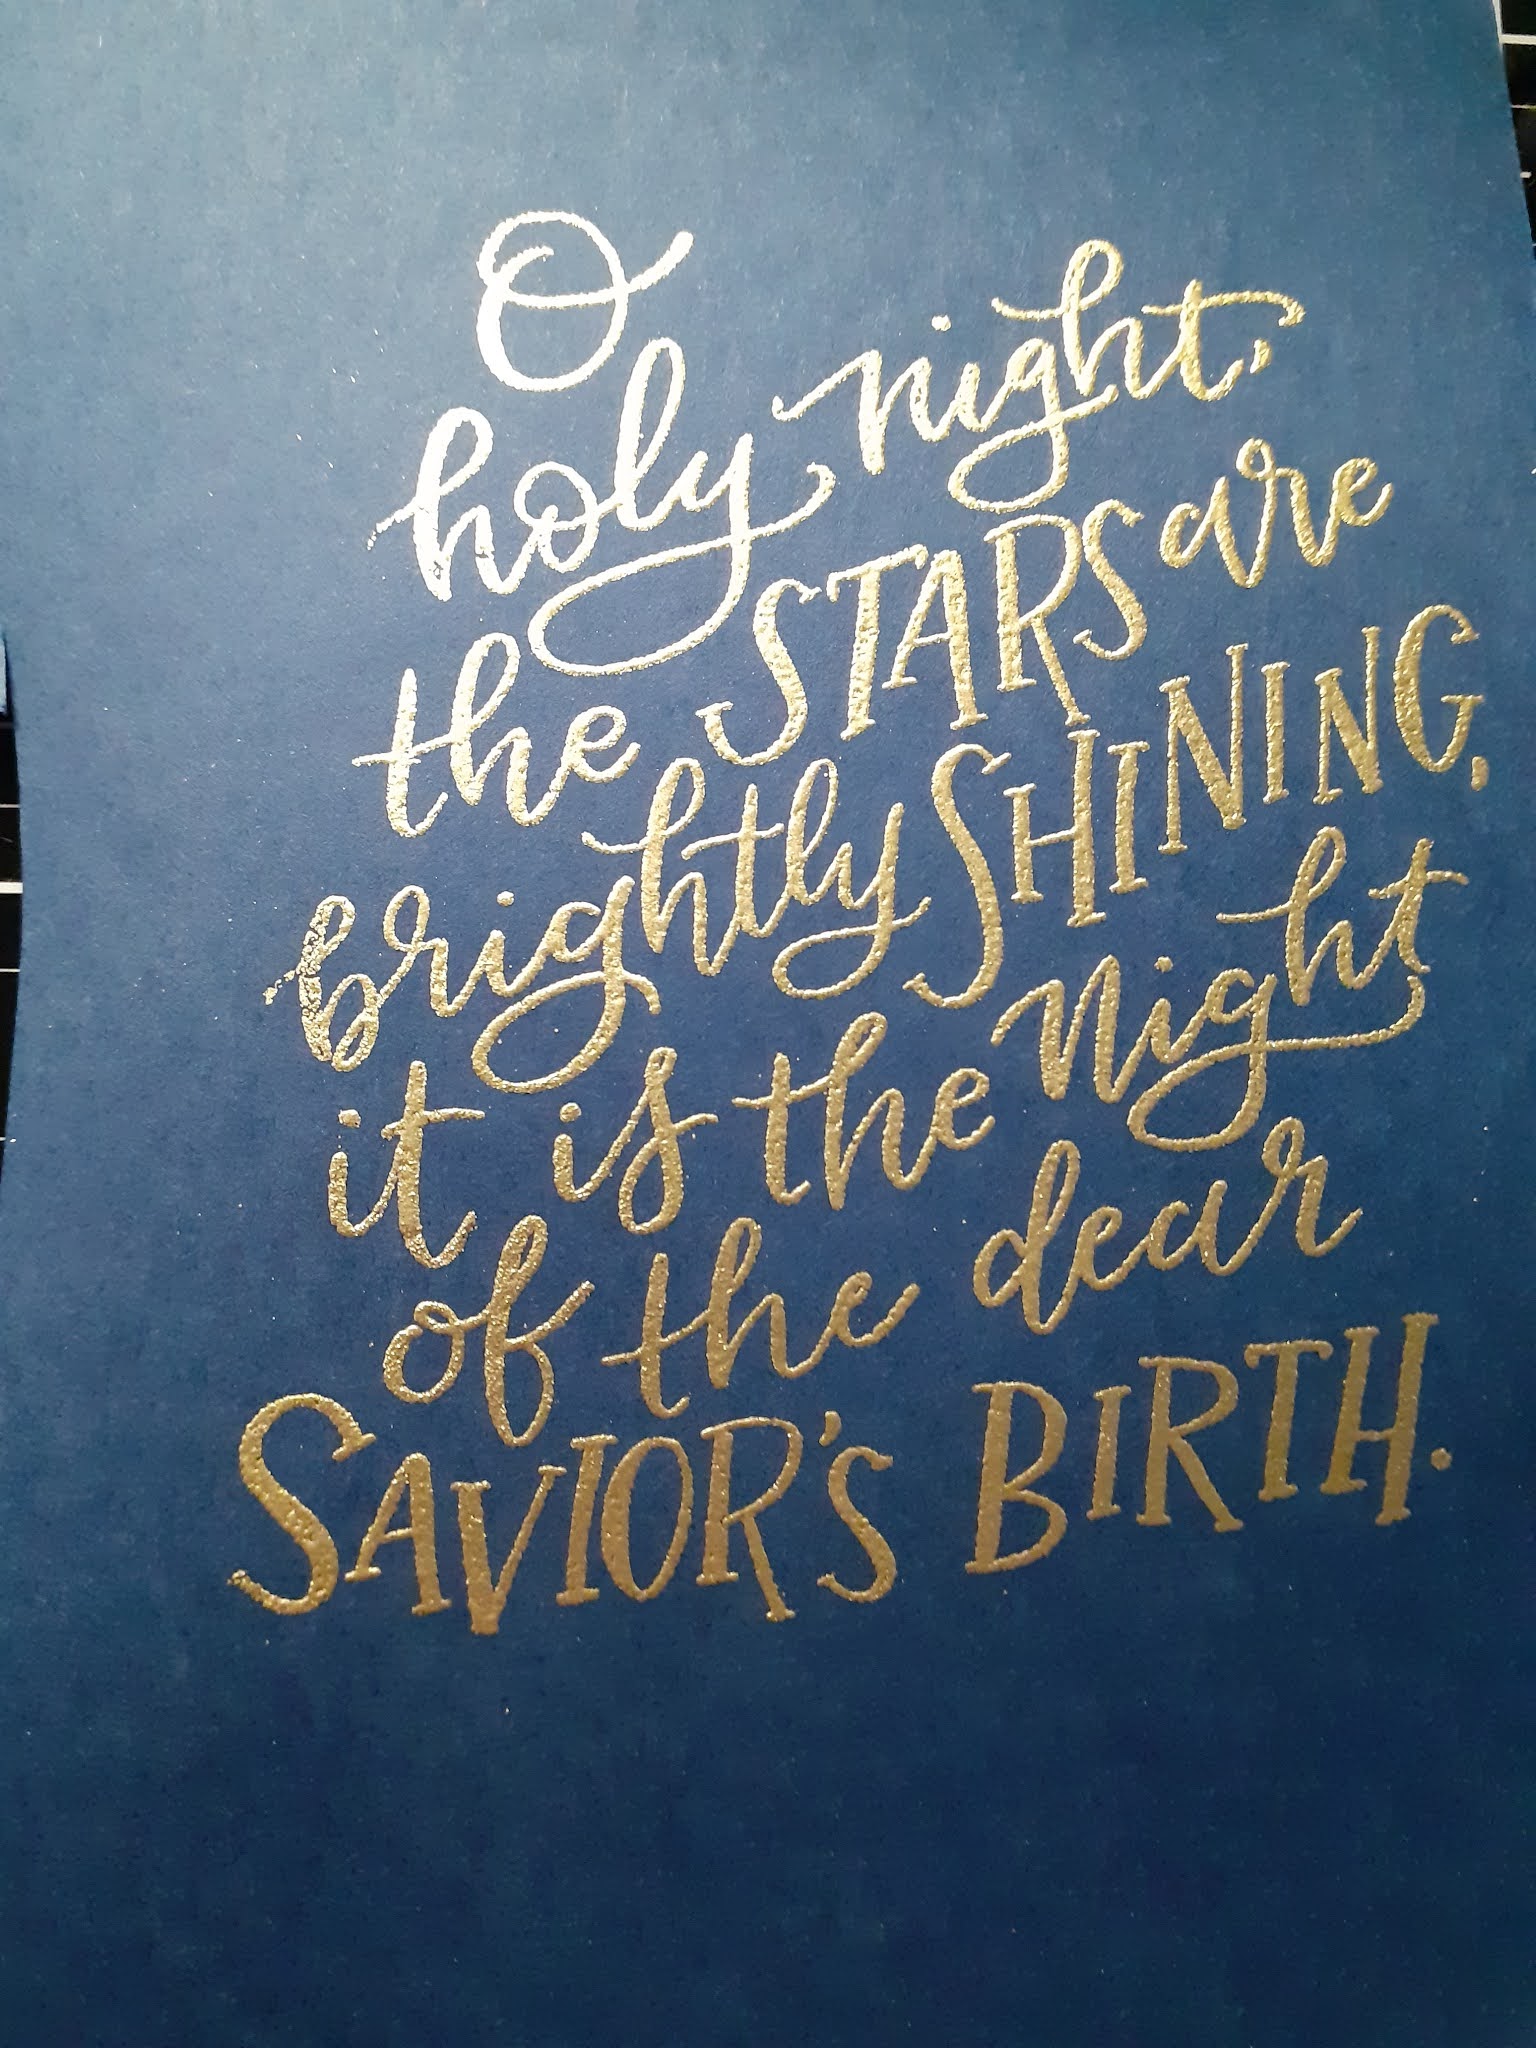 O
holy night,
the STARS are
brightly SHINING,
it is the night
of the dear
SAVIOR'S BIRTH.